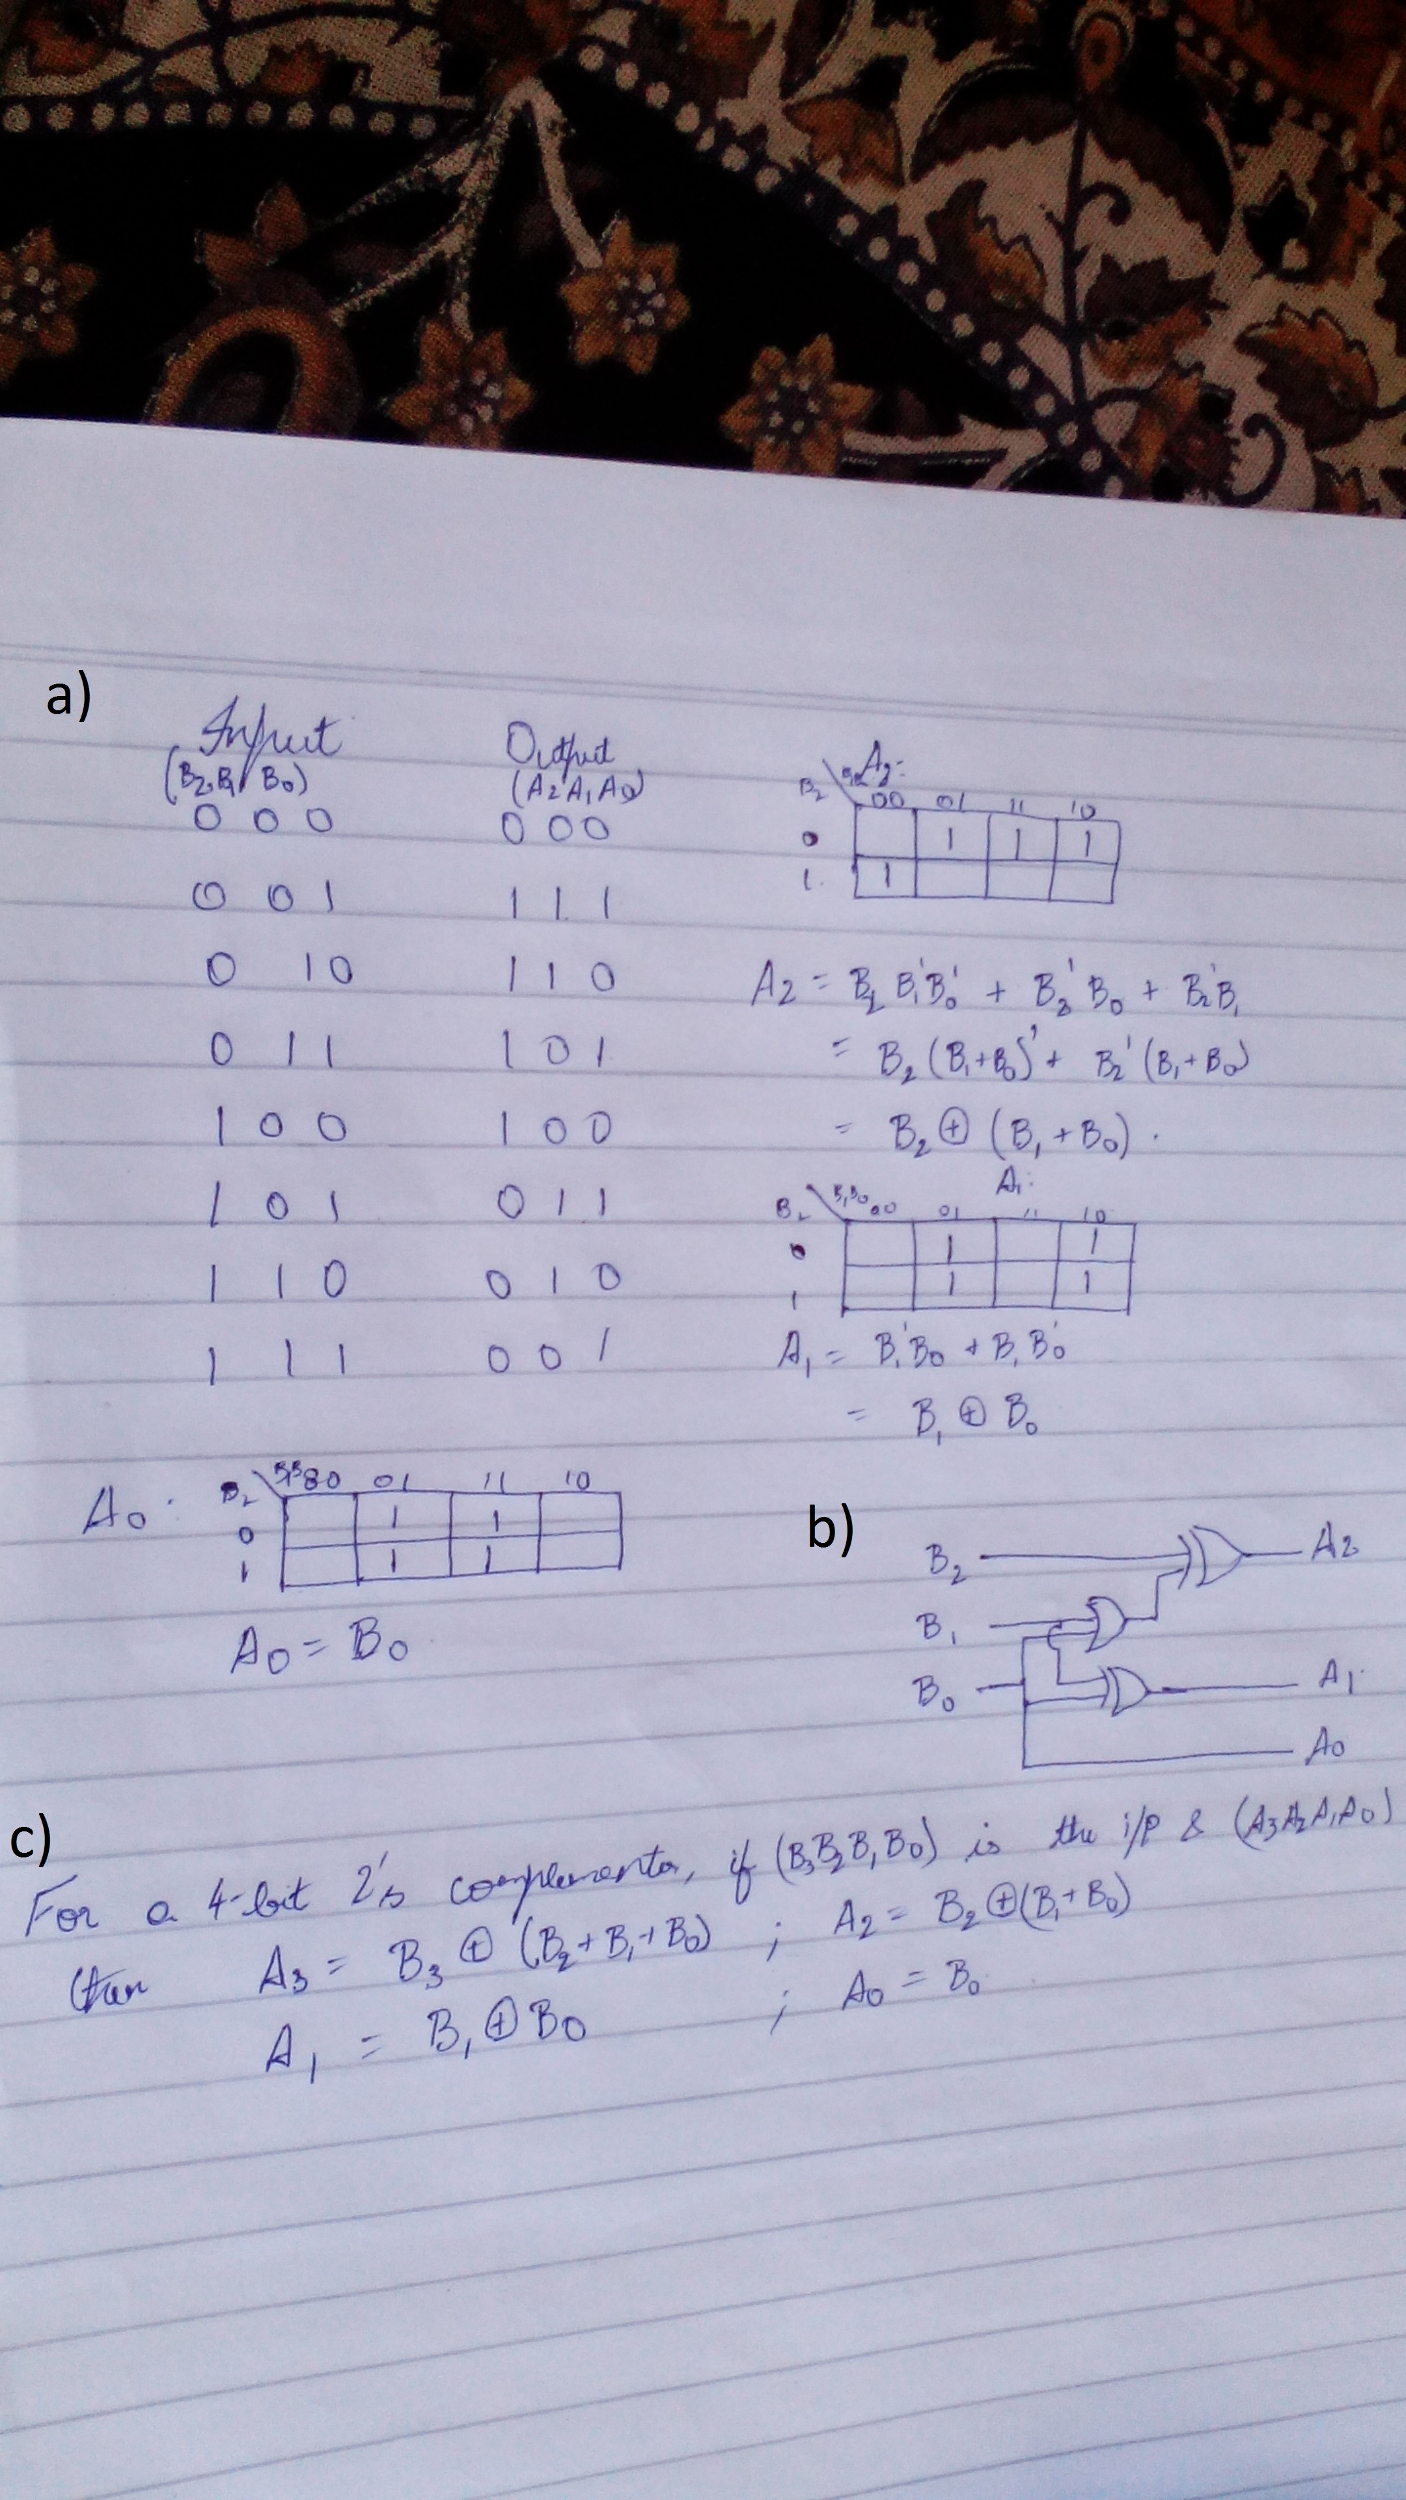 a)
Input
(B2,B1 B0)
Output
(A2 A1 A0)
0 0 0 0 0 0
0 0 1 1 1 1
0 1 0 1 1 0
0 1 1 1 0 1
1 0 0 1 0 0
1 0 1 0 1 1
1 1 0 0 1 0
1 1 1 0 0 1
A2:
B2 B1B0 00 01 11 10
0 1 1 1
1 1
A2 = B2 B1'B0' + B2'B0 + B2'B1
= B2(B1+B0)' + B2'(B1+B0)
= B2 ⊕ (B1+B0).
A1:
B2 B1B0 00 01 11 10
0 1 1
1 1 1
A1 = B1'B0 + B1B0'
= B1 ⊕ B0
A0:
B2 00 01 11 10
0 1 1
1 1 1
A0 = B0
b)
B2 A2
B1
B0 A1
A0
c)
For a 4-bit 2's if (B3B2B1B0) is the i/p & (A3A2A1A0)
then A3 = B3 ⊕ (B2+B1+B0) ; A2 = B2⊕(B1+B0)
A1 = B1⊕B0 ; A0 = B0